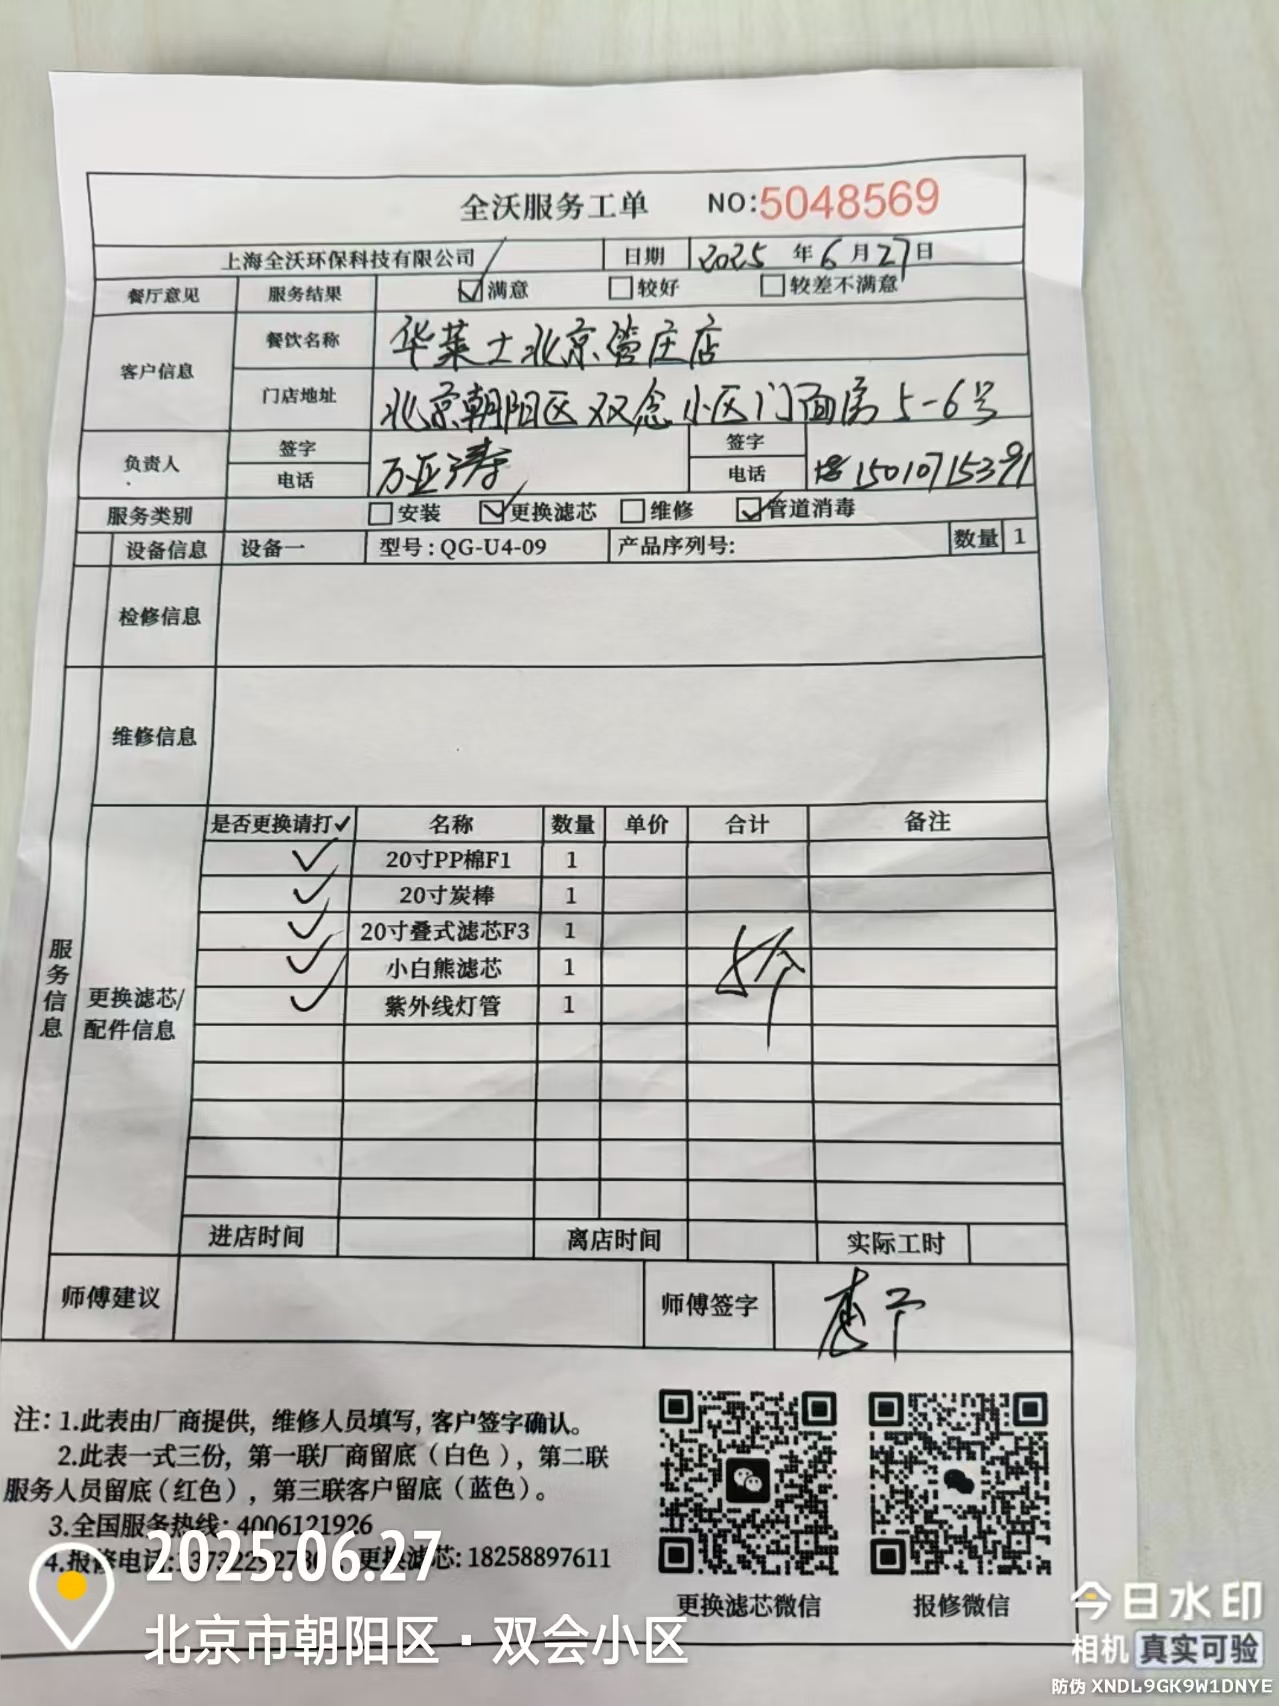 全沃服务工单 NO:5048569
上海全沃环保科技有限公司 日期 2025年6月27日
餐厅意见 服务结果 ☑满意 □较好 □较差不满意
客户信息 餐饮名称 华莱士北京管庄店
门店地址 北京朝阳区双念小区门面房5-6号
负责人 签字 万亚涛 签字
电话 电话 15010715391
服务类别 □安装 ☑更换滤芯 □维修 ☑管道消毒
设备信息 设备一 型号:QG-U4-09 产品序列号: 数量 1
检修信息
维修信息
服务信息
更换滤芯/配件信息
是否更换请打✓ 名称 数量 单价 合计 备注
✓ 20寸PP棉F1 1
✓ 20寸炭棒 1
✓ 20寸叠式滤芯F3 1
✓ 小白熊滤芯 1 5个
✓ 紫外线灯管 1
进店时间 离店时间 实际工时
师傅建议 师傅签字
注:1.此表由厂商提供,维修人员填写,客户签字确认。
2.此表一式三份,第一联厂商留底(白色),第二联
服务人员留底(红色),第三联客户留底(蓝色)。
3.全国服务热线:4006121926
4.报修电话: 更换滤芯:18258897611
更换滤芯微信 报修微信
2025.06.27
北京市朝阳区·双会小区
今日水印
相机 真实可验
防伪 XNDL9GK9W1DNYE